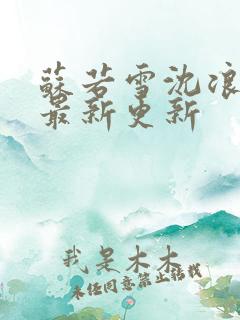 苏若雪沈浪
最新更新
我是木木
未经同意禁止搭我